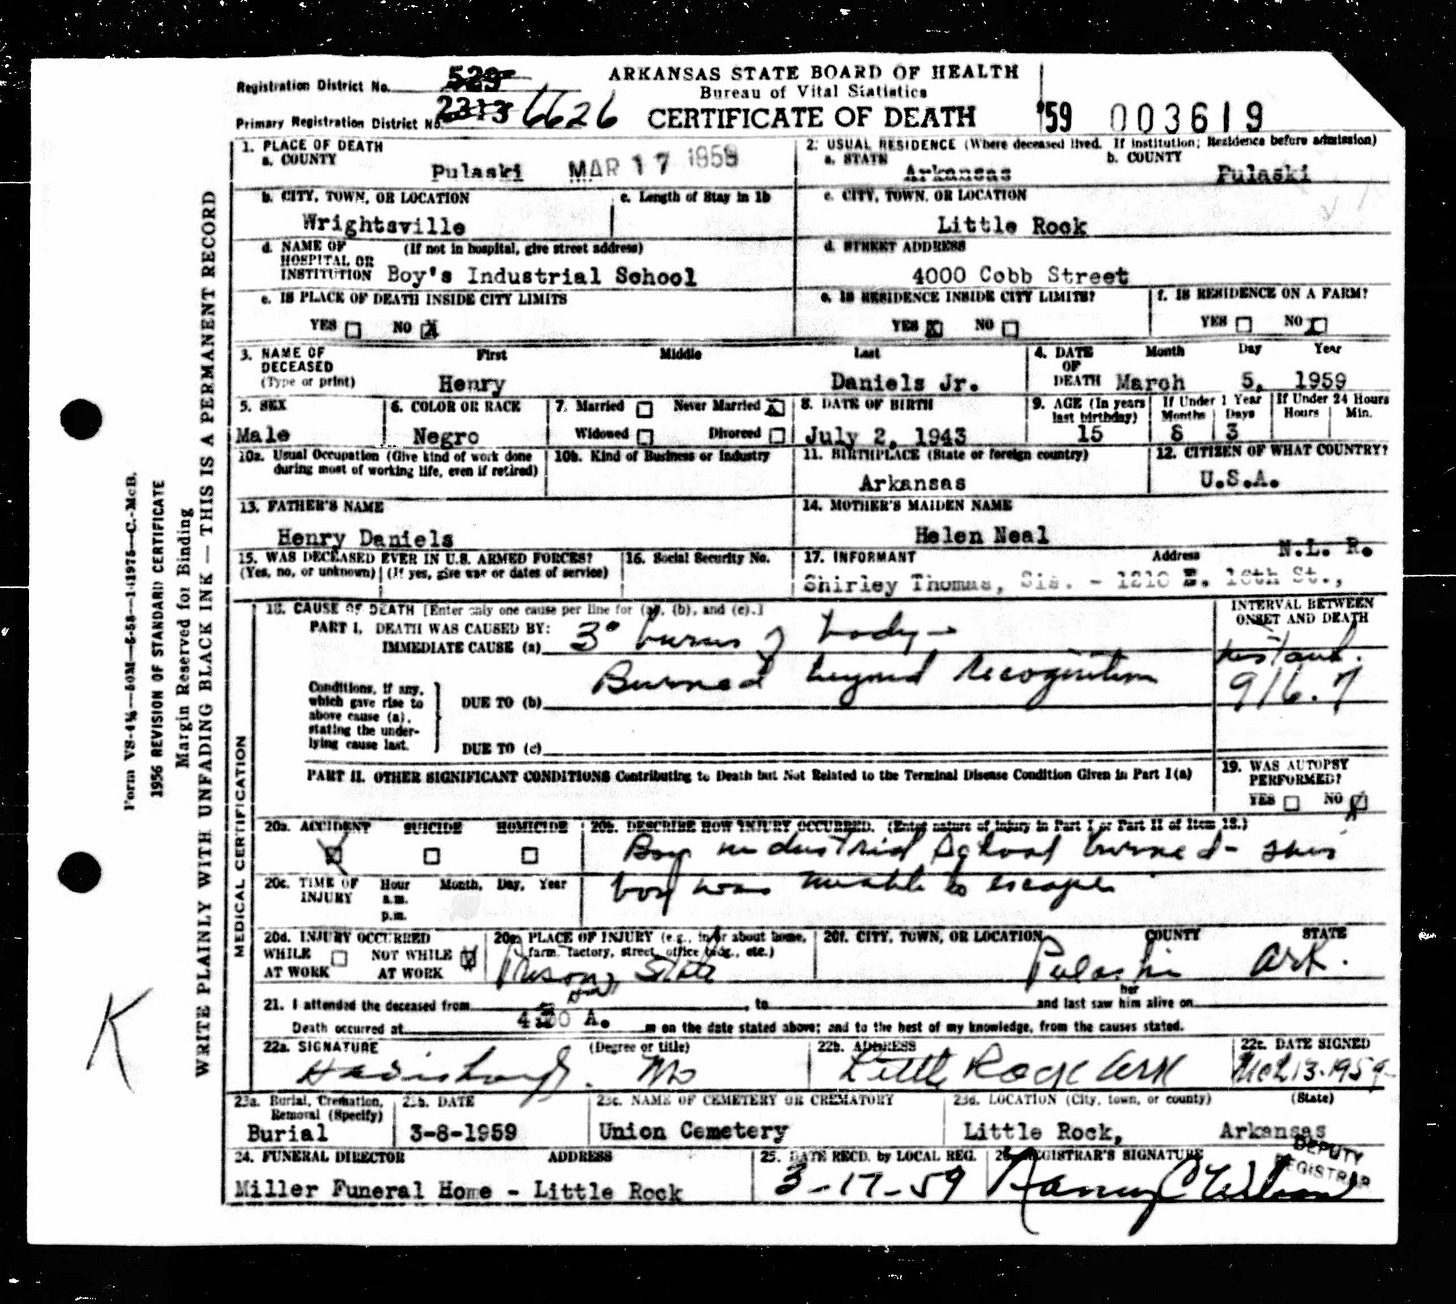 ARKANSAS STATE BOARD OF HEALTH
Bureau of Vital Statistics
CERTIFICATE OF DEATH
Registration District No. 529
Primary Registration District No. 2313 6626
'59 003619
1. PLACE OF DEATH
a. COUNTY Pulaski MAR 17 1959
2. USUAL RESIDENCE (Where deceased lived. If institution; Residence before admission)
a. STATE Arkansas b. COUNTY Pulaski
b. CITY, TOWN, OR LOCATION Wrightsville
c. Length of Stay in 1b
c. CITY, TOWN, OR LOCATION Little Rock
d. NAME OF HOSPITAL OR INSTITUTION (If not in hospital, give street address) Boy's Industrial School
d. STREET ADDRESS 4000 Cobb Street
e. IS PLACE OF DEATH INSIDE CITY LIMITS
YES NO X
e. IS RESIDENCE INSIDE CITY LIMITS?
YES X NO
f. IS RESIDENCE ON A FARM?
YES NO
3. NAME OF DECEASED (Type or print) First Middle Last
Henry Daniels Jr.
4. DATE OF DEATH Month Day Year
March 5, 1959
5. SEX Male
6. COLOR OR RACE Negro
7. Married Never Married X
Widowed Divorced
8. DATE OF BIRTH July 2, 1943
9. AGE (In years last birthday) 15
If Under 1 Year Months 8 Days 3
If Under 24 Hours Hours Min.
10a. Usual Occupation (Give kind of work done during most of working life, even if retired)
10b. Kind of Business or Industry
11. BIRTHPLACE (State or foreign country) Arkansas
12. CITIZEN OF WHAT COUNTRY? U.S.A.
13. FATHER'S NAME Henry Daniels
14. MOTHER'S MAIDEN NAME Helen Neal
15. WAS DECEASED EVER IN U.S. ARMED FORCES?
(Yes, no, or unknown) (If yes, give war or dates of service)
16. Social Security No.
17. INFORMANT Address N.L. R.
Shirley Thomas, Sis. - 1210 E. 16th St.,
18. CAUSE OF DEATH [Enter only one cause per line for (a), (b), and (c).]
INTERVAL BETWEEN ONSET AND DEATH
PART I. DEATH WAS CAUSED BY:
IMMEDIATE CAUSE (a) 3° burns of body -
Burned beyond recognition
916.7
Conditions, if any, which gave rise to above cause (a), stating the underlying cause last.
DUE TO (b)
DUE TO (c)
PART II. OTHER SIGNIFICANT CONDITIONS Contributing to Death but Not Related to the Terminal Disease Condition Given in Part I(a)
19. WAS AUTOPSY PERFORMED?
YES NO X
20a. ACCIDENT SUICIDE HOMICIDE
20b. DESCRIBE HOW INJURY OCCURRED. (Enter nature of injury in Part I or Part II of Item 18.)
Boy industrial School burned - this
boy was unable to escape
20c. TIME OF INJURY Hour a.m. p.m. Month, Day, Year
20d. INJURY OCCURRED
WHILE AT WORK NOT WHILE AT WORK
20e. PLACE OF INJURY (e.g., in or about home, farm, factory, street, office bldg., etc.)
Prison, State
20f. CITY, TOWN, OR LOCATION COUNTY STATE
Pulaski Ark.
21. I attended the deceased from , to and last saw her him alive on
Death occurred at A. m on the date stated above; and to the best of my knowledge, from the causes stated.
22a. SIGNATURE (Degree or title) MD
22b. ADDRESS Little Rock Ark
22c. DATE SIGNED Mch 13-1959
23a. Burial, Cremation, Removal (Specify) Burial
23b. DATE 3-8-1959
23c. NAME OF CEMETERY OR CREMATORY Union Cemetery
23d. LOCATION (City, town, or county) (State)
Little Rock, Arkansas
24. FUNERAL DIRECTOR ADDRESS
Miller Funeral Home - Little Rock
25. DATE RECD. by LOCAL REG. 3-17-59
26. REGISTRAR'S SIGNATURE
DEPUTY REGISTRAR
MEDICAL CERTIFICATION
WRITE PLAINLY WITH UNFADING BLACK INK — THIS IS A PERMANENT RECORD
Margin Reserved for Binding
1956 REVISION OF STANDARD CERTIFICATE
K